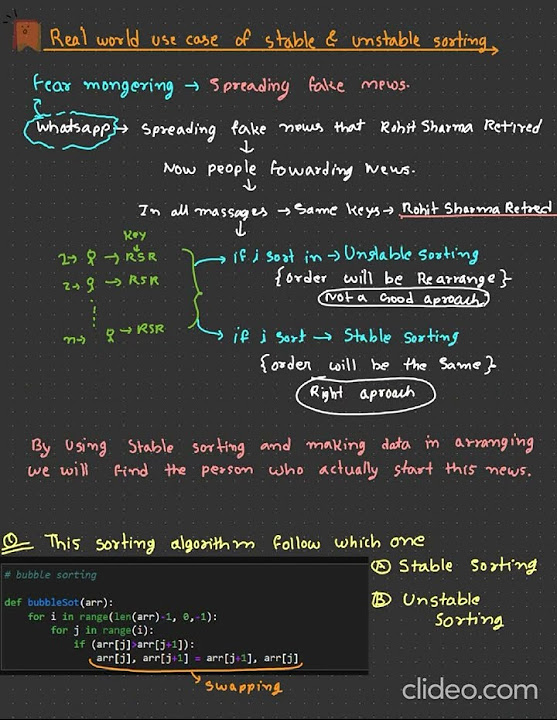 Real world use case of stable & unstable sorting
Fear mongering → Spreading fake news.
Whatsapp → Spreading fake news that Rohit Sharma Retired
↓
Now people fowarding News.
↓
In all massages → Same Keys → Rohit Sharma Retred
↓
Key
↓
1→ → RSR
2→ → RSR
n→ → RSR
→ if i sort in → Unstable Sorting
{order will be Rearrange}
Not a Good aproach.
→ if i sort → Stable Sorting
{order will be the Same}
Right aproach
By using Stable sorting and making data in arranging
we will find the person who actually start this news.
Q This sorting algorithm follow which one
A Stable Sorting
B Unstable
Sorting
# bubble sorting
def bubbleSot(arr):
for i in range(len(arr)-1, 0,-1):
for j in range(i):
if (arr[j]>arr[j+1]):
arr[j], arr[j+1] = arr[j+1], arr[j]
Swapping
clideo.com